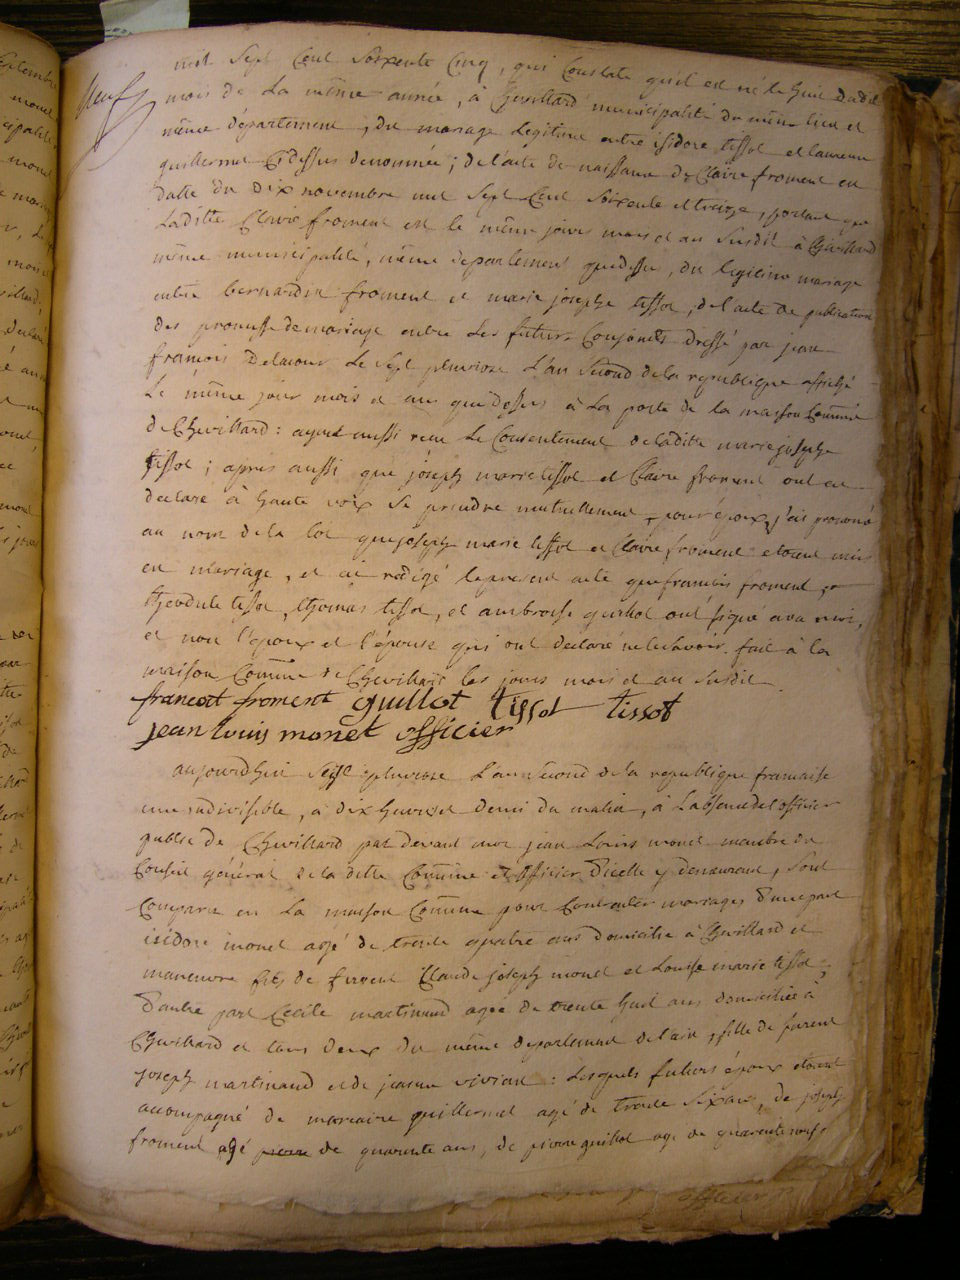 neuf
mil sept Cent Soixente Cinq, qui Constate quil est né le huit dudit
mois de La même année, à Chevillard municipalité du même lieu et
même département, du mariage Legitime entre isidore tissot et laurence
guillermet Cydessus denommée; de l'acte de naissance de Claire froment en
datte du dix novembre mil Sept Cent Soixente et treize, portant que
Laditte Claire froment est le même jour mois et an Susdit à Chevillard
même municipalité, même département quedessus, du legitime mariage
entre bernardin froment et marie josephe tissot, de l'acte de publication
des promesse de mariage entre Les futurs Conjoints dressé par jean
francois Delacour Le Sept pluviose L'an Second de la republique affiché
Le même jour mois et an quedessus à La porte de la maison Comune
de Chevillard: ayant aussi reçu Le Consentement de laditte marie josephe
tissot; apres aussi que joseph marie tissot et Claire froment ont eu
declaré à haute voix Se prendre mutuellement pour époux, j'ais prononcé
au nom de la loi que joseph marie tissot et Claire froment etoient unis
en mariage, et ai redigé le present acte que francois froment
theodule tissot, thomas tissot, et ambroise guillot ont signé avec moi,
et non l'epoux et l'épouse qui ont declaré ne le Savoir fait à la
maison Comune de Chevillard les jours mois et an Susdit
francoit froment guillot tissot tissot
jean louis monet officier
aujourdhui Seize pluviose L'an Second de la republique francaise
une indivisible, à dix heures et demi du matin, à L'absence de l'officier
public de Chevillard par devant moi jean Louis monet membre du
Conseil général de la ditte Comune et officier d'icelle y demeurant, Sont
Comparu en La maison Comune pour Contracter mariages d'une part
isidore monet agé de trente quatre ans domicilié à Chevillard et
maneuvre fils de Claude joseph monet et Louise marie tissot;
d'autre part Cécile martinaud agée de trente huit ans domiciliée à
Chevillard et tous deux du même departement de l'ain, fille de
joseph martinaud et de jeanne vivian: Lesquels futurs époux etoient
accompagné de guillermet agé de trente Six ans, de joseph
froment agé de quarente ans, de pierre guillot agé de quarente neuf
officier